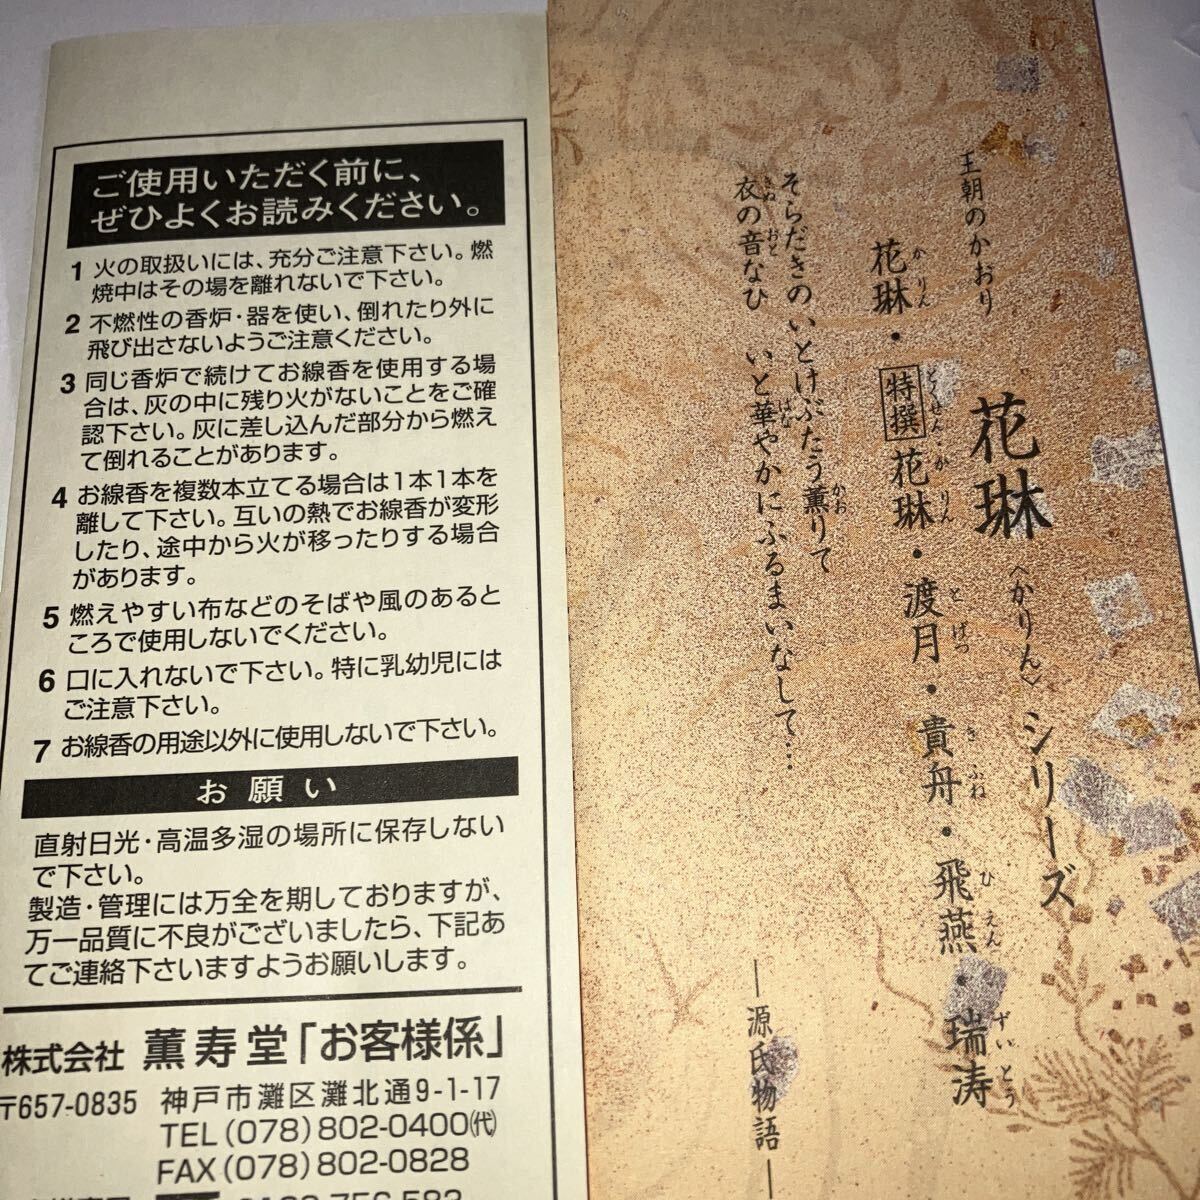 ご使用いただく前に、
ぜひよくお読みください。
1 火の取扱いには、充分ご注意下さい。燃
焼中はその場を離れないで下さい。
2 不燃性の香炉・器を使い、倒れたり外に
飛び出さないようご注意ください。
3 同じ香炉で続けてお線香を使用する場
合は、灰の中に残り火がないことをご確
認下さい。灰に差し込んだ部分から燃え
て倒れることがあります。
4 お線香を複数本立てる場合は1本1本を
離して下さい。互いの熱でお線香が変形
したり、途中から火が移ったりする場合
があります。
5 燃えやすい布などのそばや風のあると
ころで使用しないでください。
6 口に入れないで下さい。特に乳幼児には
ご注意下さい。
7 お線香の用途以外に使用しないで下さい。
お願い
直射日光・高温多湿の場所に保存しない
で下さい。
製造・管理には万全を期しておりますが、
万一品質に不良がございましたら、下記あ
てご連絡下さいますようお願いします。
株式会社 薫寿堂「お客様係」
〒657-0835 神戸市灘区灘北通9-1-17
TEL(078)802-0400㈹
FAX(078)802-0828
王朝のかおり
花琳〈かりん〉シリーズ
花琳・特撰花琳・渡月・貴舟・飛燕・瑞涛
かりん とくせん・かりん とげつ きふね ひえん ずいとう
そらだきの いとけぶたう薫りて
かお
衣の音なひ いと華やかにふるまいなして…
きぬ おと はな
―源氏物語―